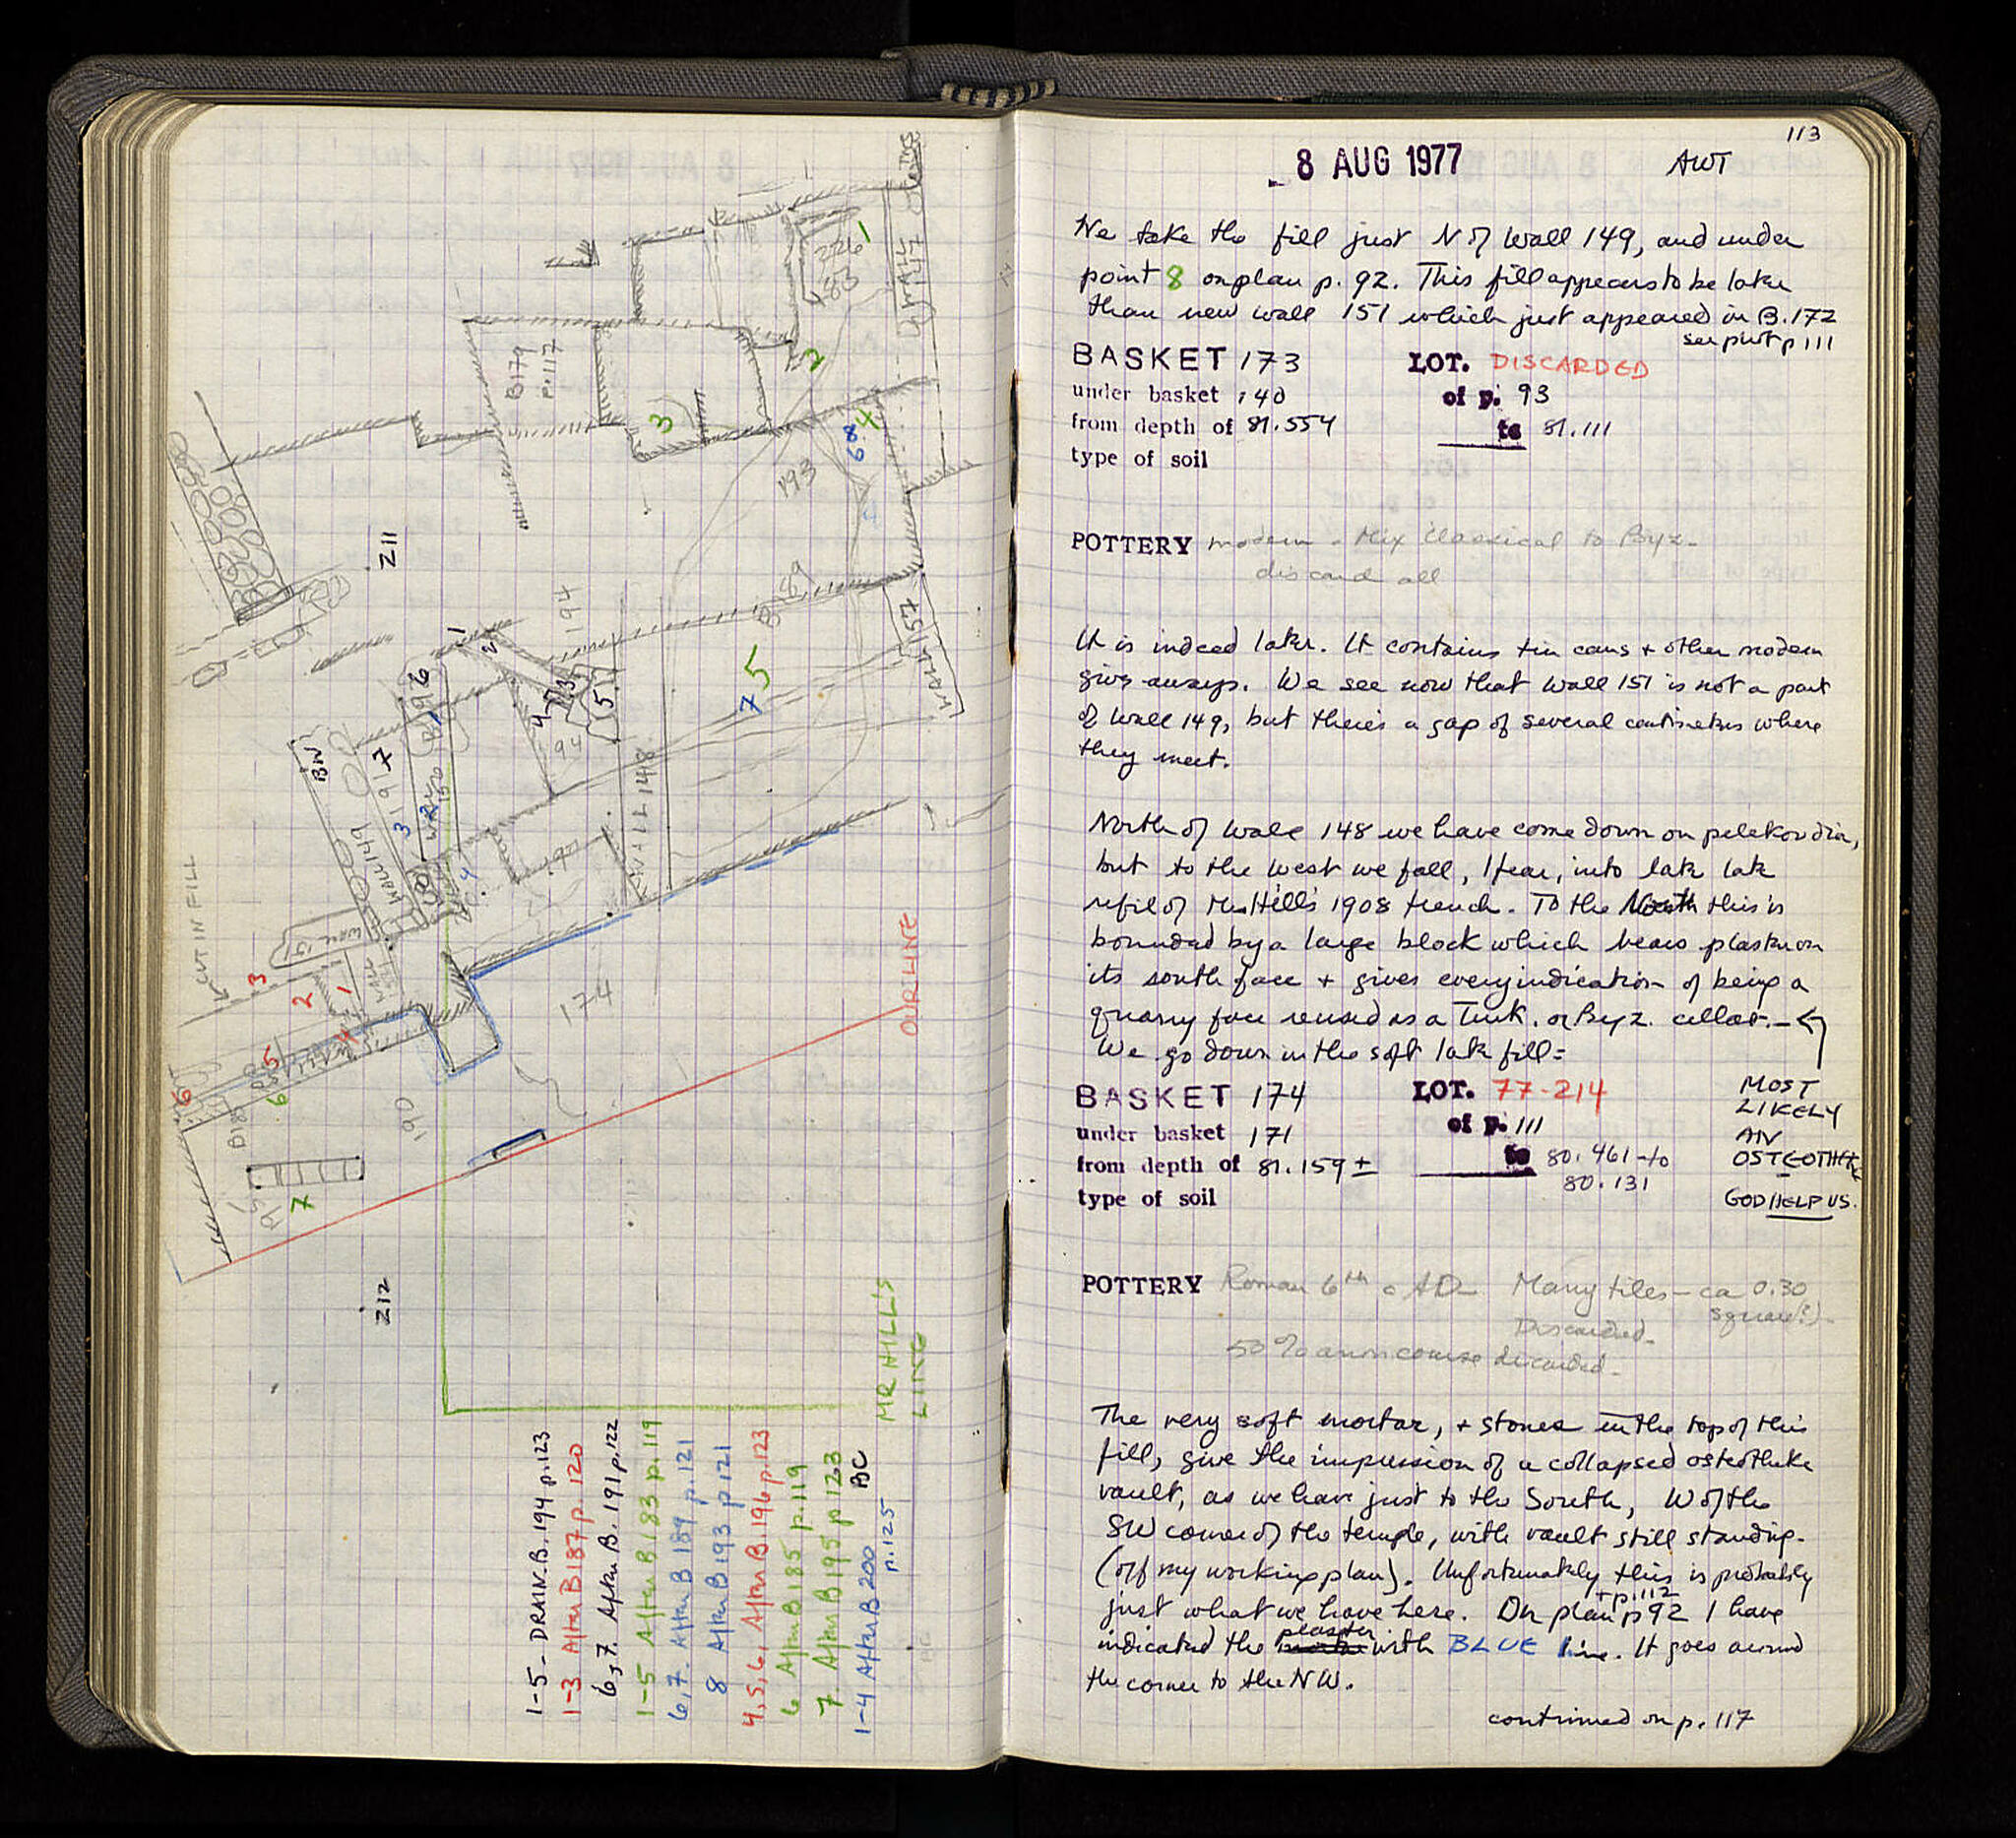 WALL 147
1
226
183
2
B179
p.117
3
4
8
6
193
Z11
194
1
2
6
3
4
5
B 89
5
7
WALL 157
BW
7
191
WALL 149
3
2
WALL 150
94
WALL 148
4
190
CUT IN FILL
WALL 151
3
2
1
4
5
6
6
174
OUR LINE
190
B185
7
Z12
MR HILL'S
LINE
1-5 - DRAIN. B. 194 p.123
1-3 After B 187 p. 120
6,7. After B. 191 p.122
1-5 After B 183 p.119
6,7. After B 189 p.121
8 After B 193 p.121
4,5,6, After B.196 p.123
6 After B 185 p.119
7. After B 195 p 123
BC
1-4 After B 200
p.125
113
8 AUG 1977 AWT
We take the fill just N of Wall 149, and under
point 8 on plan p. 92. This fill appears to be later
than new wall 151 which just appeared in B.172
see pict p 111
BASKET 173 LOT. DISCARDED
under basket 140 of p. 93
from depth of 81.554 to 81.111
type of soil
POTTERY modern - Mix Classical to Byz-
discard all
It is indeed later. It contains tin cans + other modern
give aways. We see now that Wall 151 is not a part
of Wall 149, but there's a gap of several centimeters where
they meet.
North of Wall 148 we have come down on pelekoudia,
but to the West we fall, I fear, into late late
refil of Mr. Hill's 1908 trench. To the North this is
bounded by a large block which bears plaster on
its south face + gives every indication of being a
quarry face reused as a Turk. or Byz. cellar.-
We go down in the soft late fill =
BASKET 174 LOT. 77-214
under basket 171 of p. 111
from depth of 81.159 ± to 80.461 - to
80.131
type of soil
MOST
LIKELY
AN
OSTEOTHEKE
GOD HELP US.
POTTERY Roman 6th c AD- Many tiles - ca 0.30
square(?)-
Discarded-
50% anon coarse discarded-
The very soft mortar, + stones in the top of this
fill, give the impression of a collapsed osteotheke
vault, as we have just to the South, W of the
SW corner of the temple, with vault still standing.
(off my working plan). Unfortunately this is probably
+ p.112
just what we have here. On plan p 92 I have
plaster
indicated the with BLUE line. It goes around
the corner to the NW.
continued on p. 117